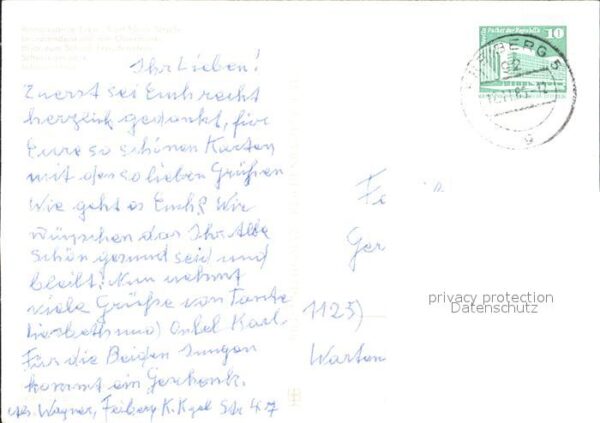 Ihr Lieben!
Zuerst sei Euch recht
herzlich gedankt, für
Eure so schönen Karten
mit den so lieben Grüßen
Wie geht es Euch? Wir
wünschen das Ihr Alle
schön gesund seid und
bleibt! Nun nehmt
viele Grüße von Tante
Liesbeth und Onkel Karl.
Für die Beiden Jungen
kommt ein Geschenk.
Abs. Wagner, Freiberg K. Kgel Str 47
Palast der Republik
10
DDR
BERG 5
92
Fa
Ger
1125
Warten
privacy protection
Datenschutz